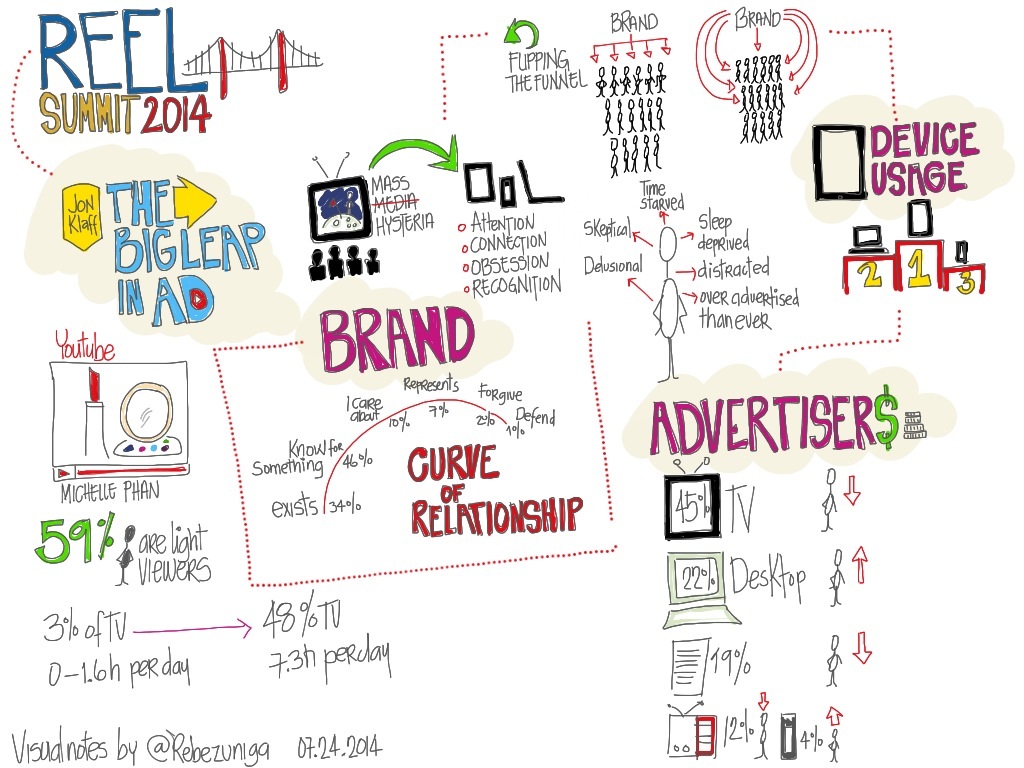 REEL
SUMMIT 2014
Jon
Klaff
THE
BIG LEAP
IN AD
Youtube
MICHELLE PHAN
59% are light
VIEWERS
3% of TV
0-1.6h per day
48% TV
7.3h per day
Visualnotes by @Rebezuniga 07.24.2014
FLIPPING
THE FUNNEL
BRAND
BRAND
MASS
MEDIA
HYSTERIA
ATTENTION
CONNECTION
OBSESSION
RECOGNITION
Time
starved
Skeptical
Delusional
Sleep
deprived
distracted
over advertised
than ever
BRAND
exists 34%
Know for
Something 46%
I care
about 10%
Represents
7%
Forgive
2%
Defend
1%
CURVE
OF
RELATIONSHIP
DEVICE
USAGE
2 1 3
ADVERTISER$
45% TV
22% Desktop
19%
12% 4%